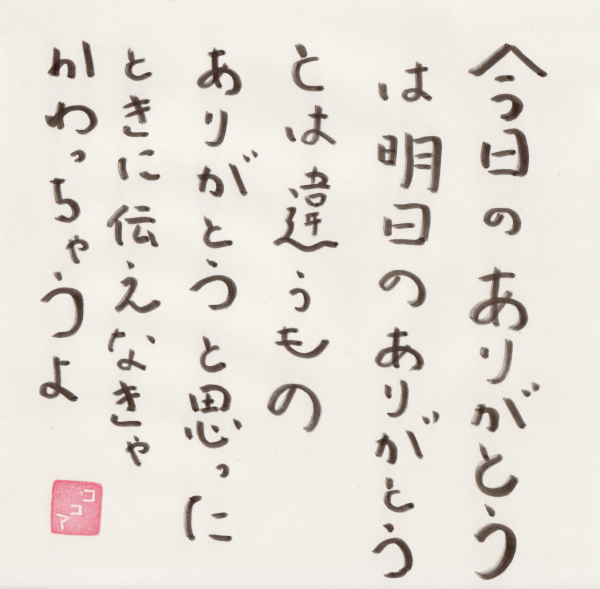 今日のありがとう
は明日のありがとう
とは違うもの
ありがとうと思った
ときに伝えなきゃ
かわっちゃうよ
ココア